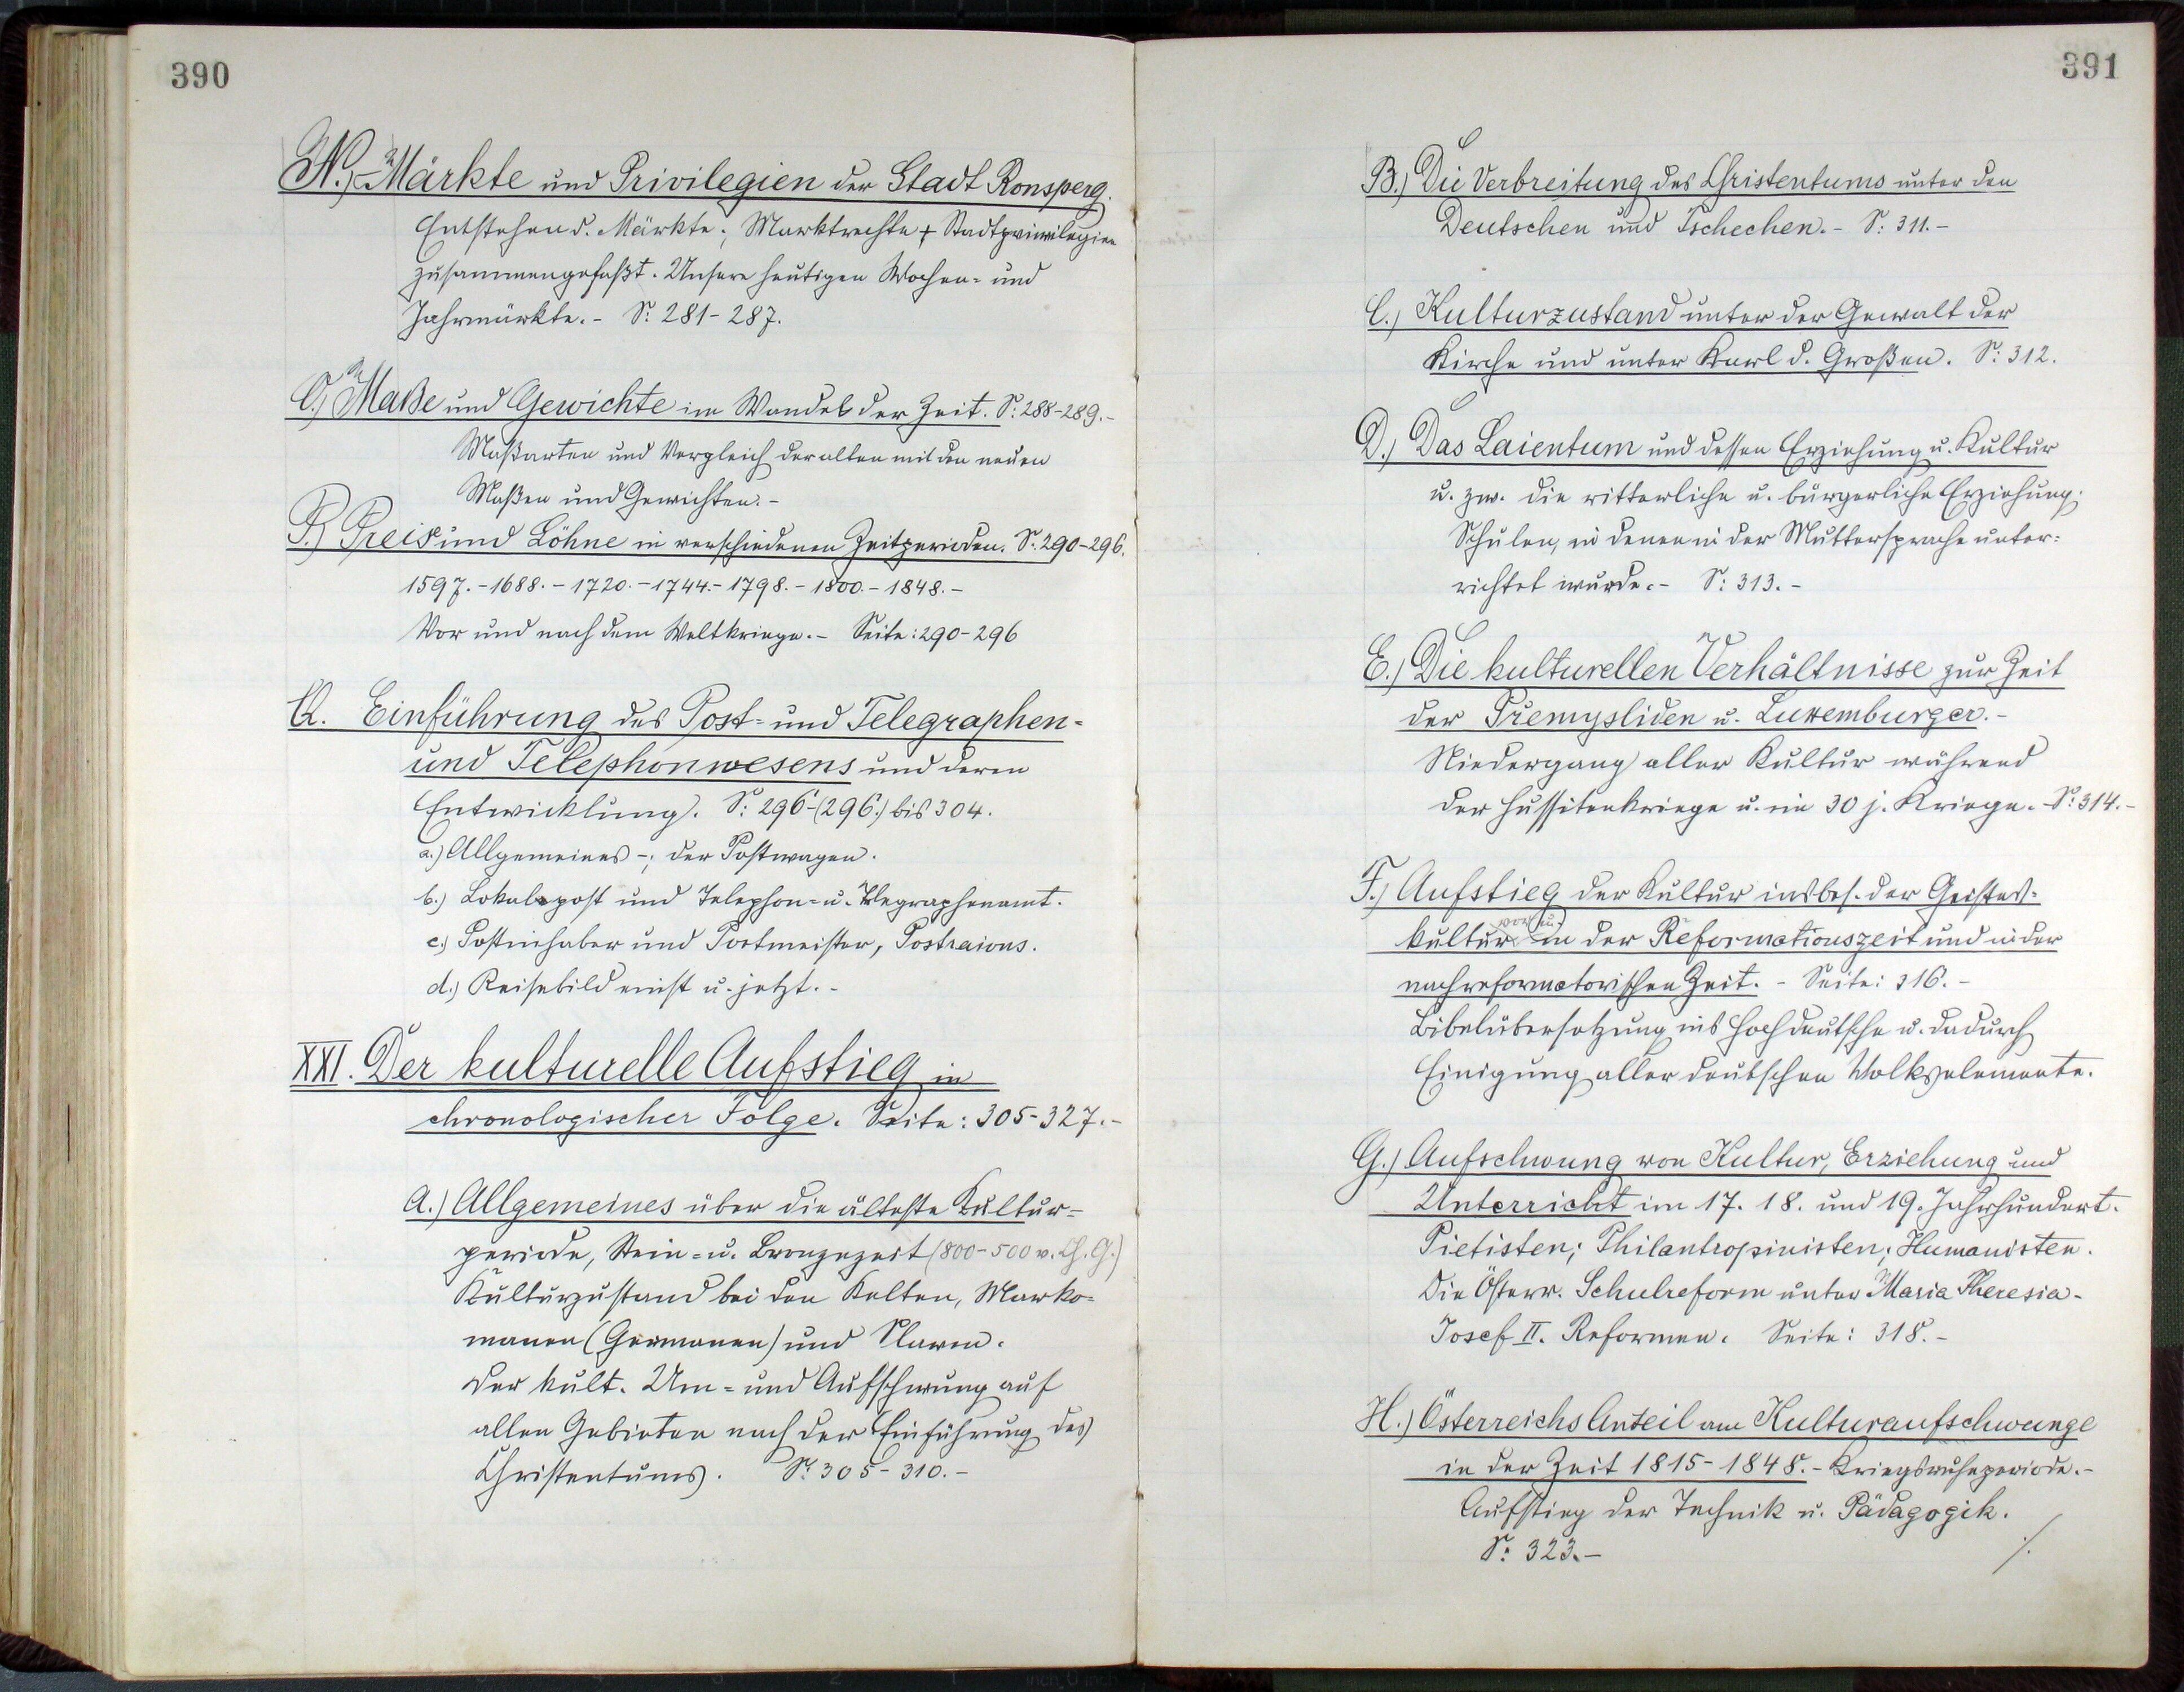 390
N.) Märkte und Privilegien der Stadt Ronsperg.
Entstehen d. Märkte; Marktrechte + Stadtprivilegien
zusammengefaßt. Unsere heutigen Wochen- und
Jahrmärkte. - S: 281-287.
O.) Maße und Gewichte im Wandel der Zeit. S: 288-289.-
Maßarten und Vergleich der alten mit den neuen
Maßen und Gewichten.-
P.) Preis und Löhne in verschiedenen Zeitperioden. S. 290-296.
1597.-1688.-1720.-1744.-1798.-1800.-1848.-
Vor und nach dem Weltkriege.- Seite: 290-296
Q. Einführung des Post- und Telegraphen-
und Telephonwesens und deren
Entwicklung. S: 296-(296.) bis 304.
a.) Allgemeines -; der Postwagen.
b.) Lokalpost und Telephon- u. Telegraphenamt.
c.) Postinhaber und Postmeister, Postraions.
d.) Reisebild einst u. jetzt.-
XXI. Der kulturelle Aufstieg in
chronologischer Folge. Seite: 305-327.-
A.) Allgemeines über die älteste Kultur-
periode, Stein- u. Bronzezeit (800-500 v. Ch. G.)
Kulturzustand bei den Kelten, Marko-
manen (Germanen) und Slaven.
Der kult. Um- und Aufschwung auf
allen Gebieten nach der Einführung des
Christentums. S: 305-310.-
391
B.) Die Verbreitung des Christentums unter den
Deutschen und Tschechen.- S: 311.-
C.) Kulturzustand unter der Gewalt der
Kirche und unter Karl d. Großen. S: 312.
D.) Das Laientum und dessen Erziehung u. Kultur
u. zw. die ritterliche u. bürgerliche Erziehung.
Schulen, in denen in der Muttersprache unter-
richtet wurde.- S: 313.-
E.) Die kulturellen Verhältnisse zur Zeit
der Přemysliden u. Luxemburger.-
Niedergang aller Kultur während
der Hussitenkriege u. im 30 j. Kriege.- S: 314.-
F.) Aufstieg der Kultur insbes. der Geistes-
kultur vor u. in der Reformationszeit und in der
nachreformatorischen Zeit.- Seite: 316.-
Bibelübersetzung ins Hochdeutsche u. dadurch
Einigung aller deutschen Volkselemente.
G.) Aufschwung von Kultur, Erziehung und
Unterricht im 17. 18. und 19. Jahrhundert.
Pietisten; Philantropinisten; Humanisten.
Die Österr. Schulreform unter Maria Theresia-
Josef II. Reformen. Seite: 318.-
H.) Österreichs Anteil am Kulturaufschwunge
in der Zeit 1815-1848.- Kriegsruheperiode.-
Aufstieg der Technik u. Pädagogik.
S: 323.- ./.